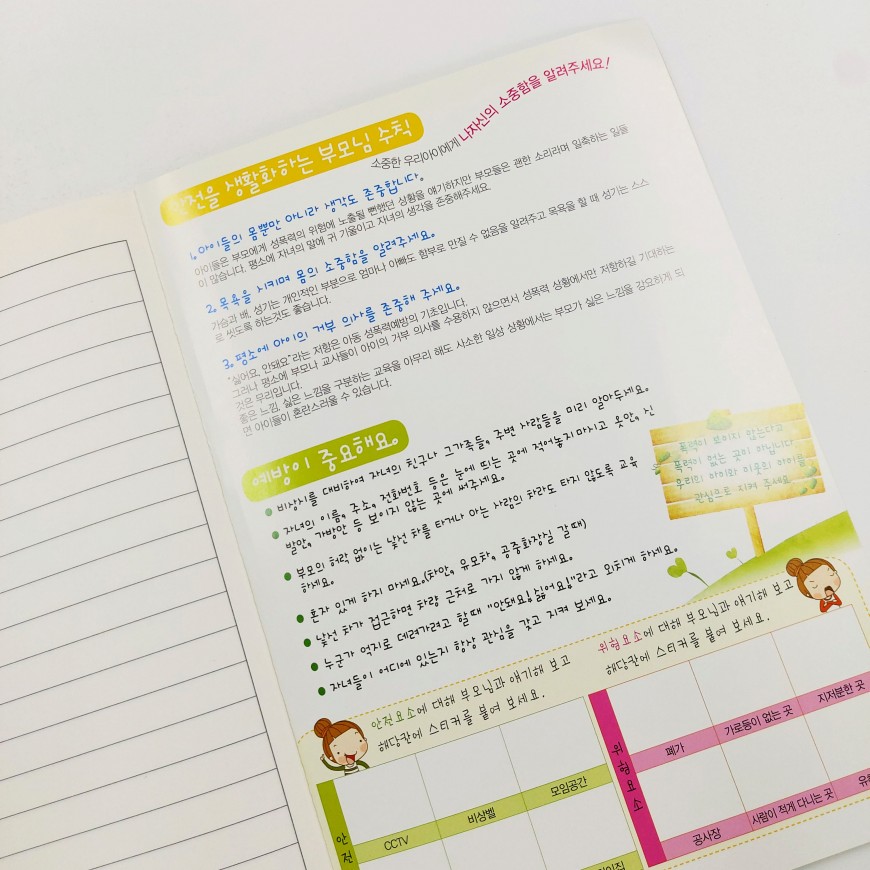 안전을 생활화하는 부모님 수칙
소중한 우리아이에게 나자신의 소중함을 알려주세요!
1. 아이들의 몸뿐만 아니라 생각도 존중합니다.
아이들은 부모에게 성폭력의 위험에 노출될 뻔했던 상황을 얘기하지만 부모들은 괜한 소리라며 일축하는 일들
이 많습니다. 평소에 자녀의 말에 귀 기울이고 자녀의 생각을 존중해주세요.
2. 목욕을 시키며 몸의 소중함을 알려주세요.
가슴과 배, 성기는 개인적인 부분으로 엄마나 아빠도 함부로 만질 수 없음을 알려주고 목욕을 할 때 성기는 스스
로 씻도록 하는것도 좋습니다.
3. 평소에 아이의 거부 의사를 존중해 주세요.
"싫어요, 안돼요"라는 저항은 아동 성폭력예방의 기초입니다.
그러나 평소에 부모나 교사들이 아이의 거부 의사를 수용하지 않으면서 성폭력 상황에서만 저항하길 기대하는
것은 무리입니다.
좋은 느낌, 싫은 느낌을 구분하는 교육을 아무리 해도 사소한 일상 상황에서는 부모가 싫은 느낌을 강요하게 되
면 아이들이 혼란스러울 수 있습니다.
예방이 중요해요.
비상시를 대비하여 자녀의 친구나 그가족들, 주변 사람들을 미리 알아두세요.
자녀의 이름, 주소, 전화번호 등은 눈에 띄는 곳에 적어놓지마시고 옷안, 신
발안, 가방안 등 보이지 않는 곳에 써주세요.
부모의 허락 없이는 낯선 차를 타거나 아는 사람의 차라도 타지 않도록 교육
하세요.
혼자 있게 하지 마세요.(차안, 유모차, 공중화장실 갈때)
낯선 차가 접근하면 차량 근처로 가지 않게 하세요.
누군가 억지로 데려가려고 할때 "안돼요! 싫어요!"라고 외치게 하세요.
자녀들이 어디에 있는지 항상 관심을 갖고 지켜 보세요.
폭력이 보이지 않는다고
폭력이 없는 곳이 아닙니다
우리의 아이와 이웃의 아이를
관심으로 지켜 주세요
안전요소에 대해 부모님과 얘기해 보고
해당칸에 스티커를 붙여 보세요.
위험요소에 대해 부모님과 얘기해 보고
해당칸에 스티커를 붙여 보세요.
안전
CCTV
비상벨
모임공간
위험요소
폐가
가로등이 없는 곳
지저분한 곳
공사장
사람이 적게 다니는 곳